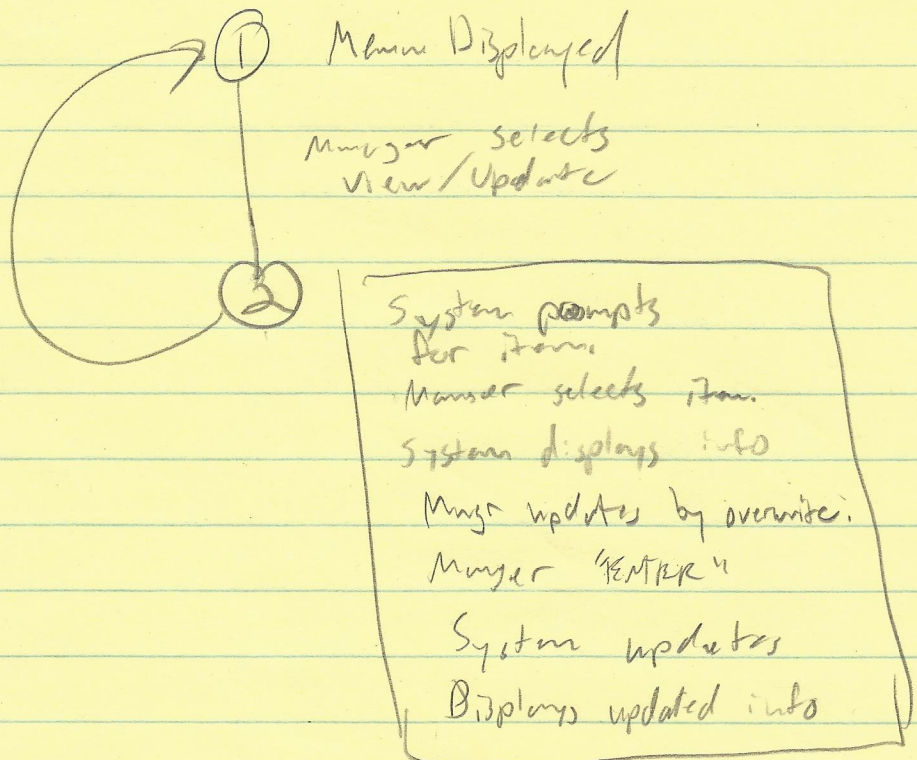 1 Menu Displayed
Manager selects
View/Update
2
System prompts
for item.
Manager selects item.
System displays info
Mngr updates by overwrite.
Manger "ENTER"
System updates
Displays updated info